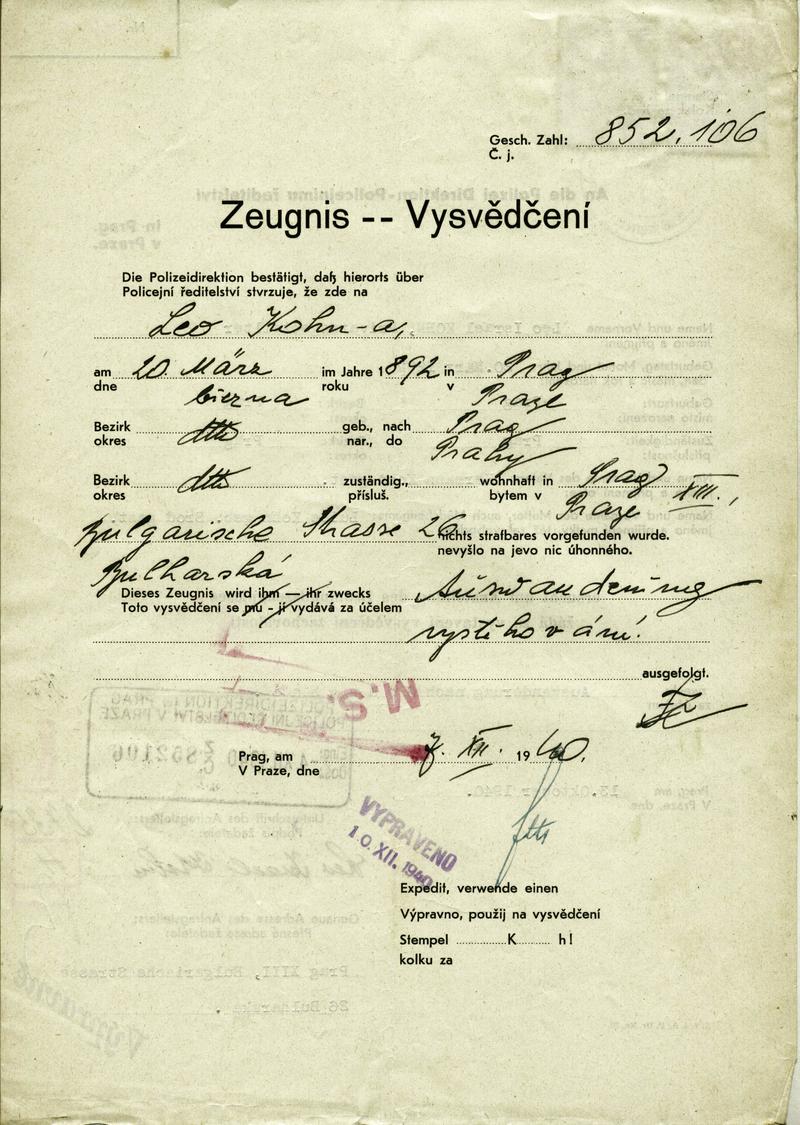 Gesch. Zahl: 852.106
Č. j.
Zeugnis -- Vysvědčení
Die Polizeidirektion bestätigt, daß hierorts über
Policejní ředitelství stvrzuje, že zde na
Leo Kohn-a,
am 20. März im Jahre 1892 in Prag
dne března roku v Praze
Bezirk dtto geb., nach Prag
okres nar., do Prahy
Bezirk dtto zuständig., wohnhaft in Prag XIII.,
okres přísluš. bytem v Praze
Bulgarische Strasse 26 nichts strafbares vorgefunden wurde.
nevyšlo na jevo nic úhonného.
Bulharská
Dieses Zeugnis wird ihm — ihr zwecks Auswanderung
Toto vysvědčení se mu - jí vydává za účelem
vystěhování.
ausgefolgt.
M.S.
Prag, am 7. XII. 1940.
V Praze, dne
VYPRAVENO
10. XII. 1940
Expedit, verwende einen
Výpravno, použij na vysvědčení
Stempel K h!
kolku za